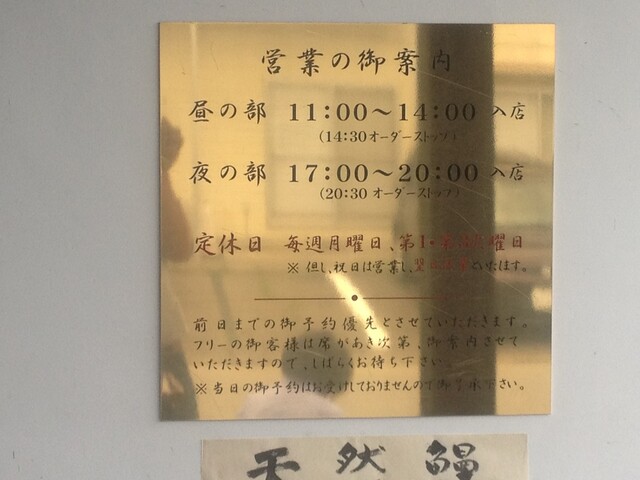 営業の御案内
昼の部 11:00〜14:00 入店
(14:30オーダーストップ)
夜の部 17:00〜20:00 入店
(20:30 オーダーストップ)
定休日 毎週月曜日、第1・第3火曜日
※ 但し、祝日は営業し、翌日休業といたします。
前日までの御予約優先とさせていただきます。
フリーの御客様は席があき次第、御案内させて
いただきますので、しばらくお待ち下さい。
※当日の御予約はお受けしておりませんので御了承下さい。
天然鰻